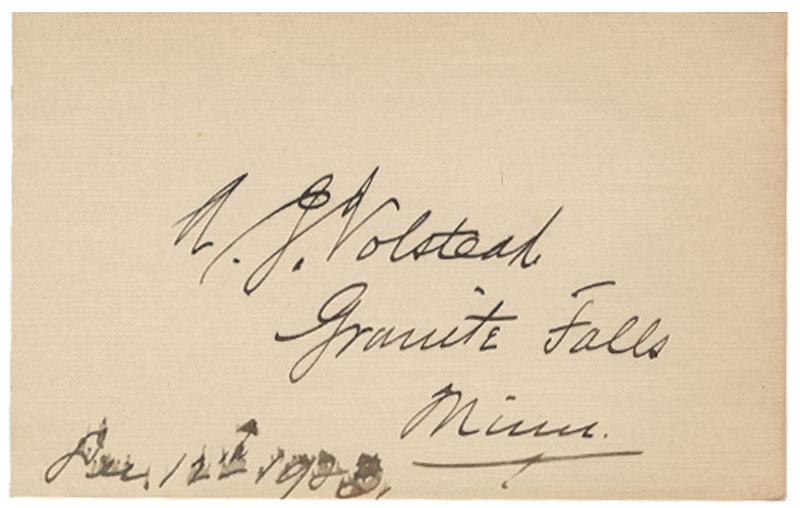 A. J. Volstead
Granite Falls
Minn.
Dec. 12th